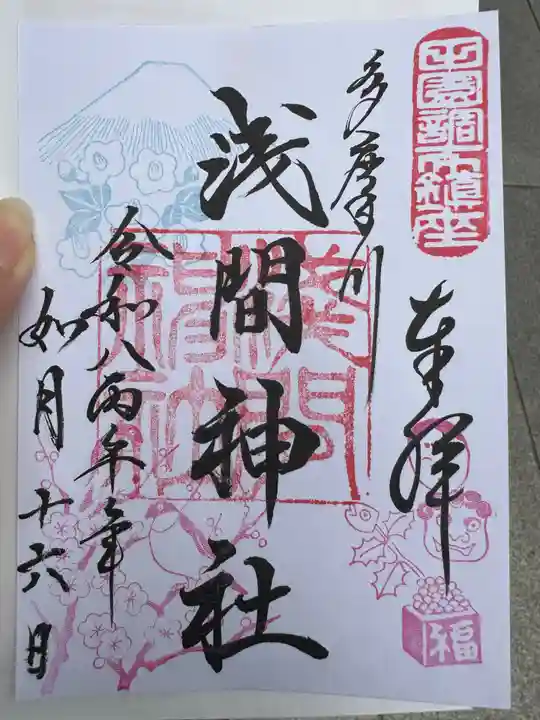 田園調布鎮座
奉拝
多摩川
浅間神社
浅間神社
令和八丙午年
如月十六日
福